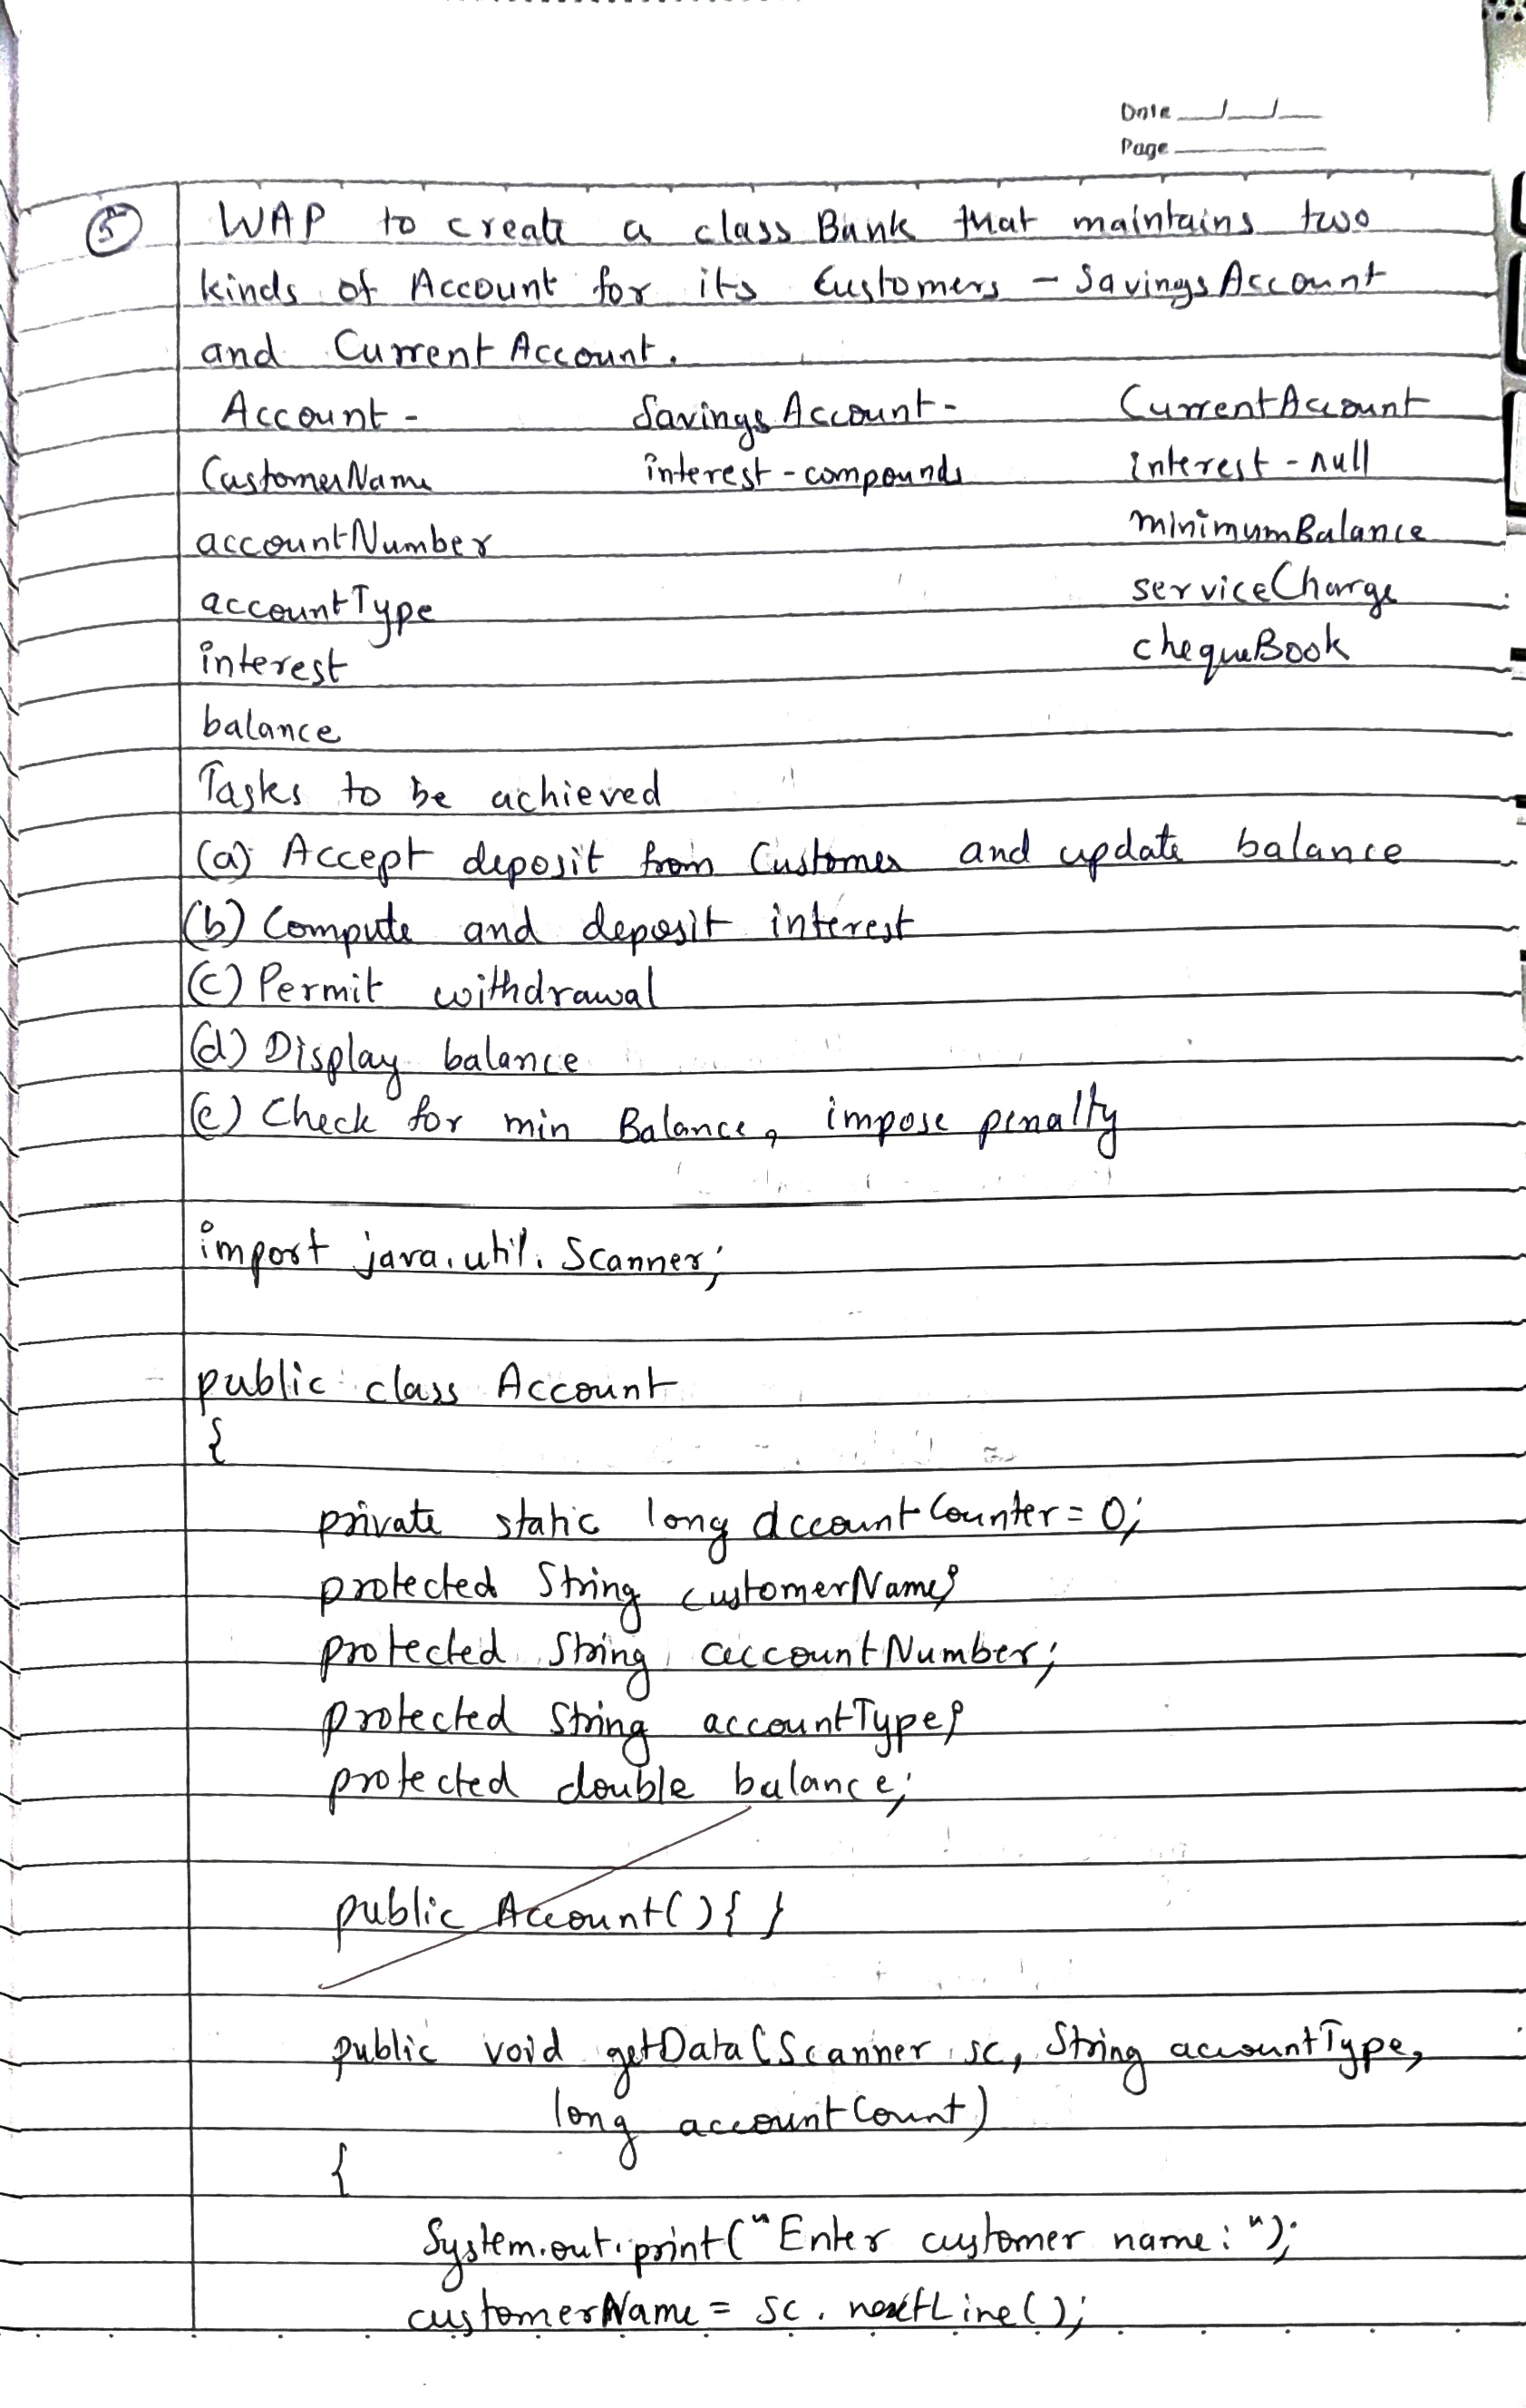 Date __/__/__
Page ______
5 WAP to create a class Bank that maintains two
kinds of Account for its Customers - SavingsAccount
and CurrentAccount.
Account - SavingsAccount - CurrentAccount
CustomerName interest - compounds interest - null
accountNumber minimumBalance
accountType serviceCharge
interest chequeBook
balance
Tasks to be achieved
(a) Accept deposit from Customer and update balance
(b) Compute and deposit interest
(c) Permit withdrawal
(d) Display balance
(e) Check for min Balance, impose penalty
import java.util.Scanner;
public class Account
{
private static long accountCounter = 0;
protected String customerName;
protected String accountNumber;
protected String accountType;
protected double balance;
public Account(){ }
public void getData(Scanner sc, String accountType,
long accountCount)
{
System.out.print("Enter customer name: ");
customerName = sc.nextLine();